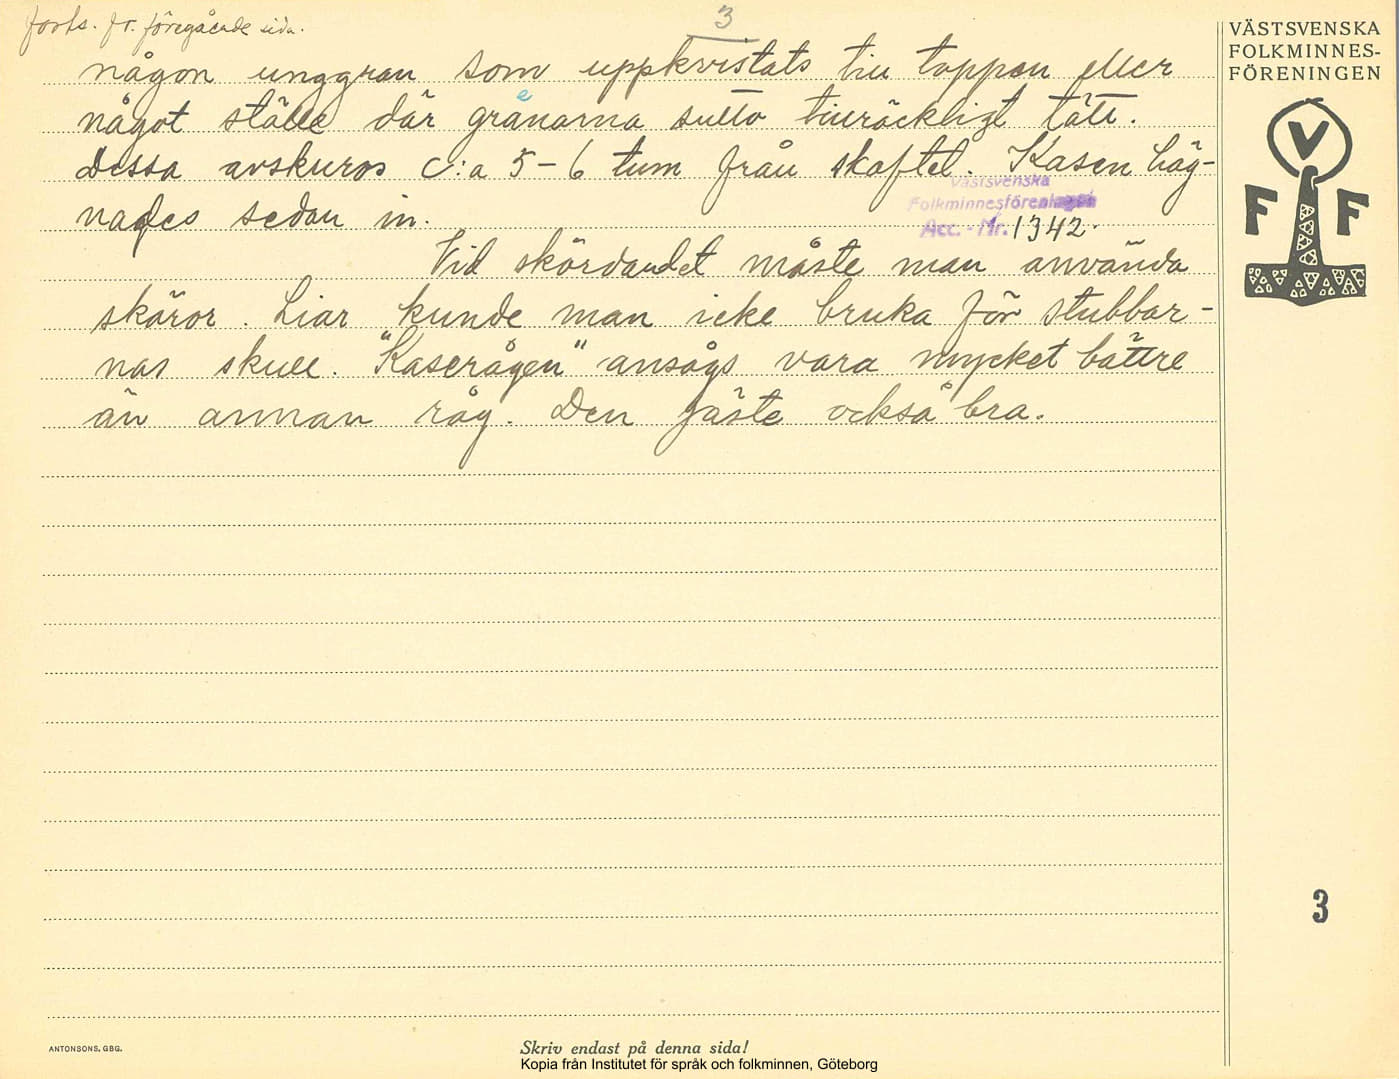 forts. fr. föregående sida.
3
någon unggran som uppkvistats till toppen eller
något ställe där granarna sutto tillräckligt tätt.
e
Dessa avskuros c:a 5-6 tum från skaftet. Kasen häg-
nades sedan in.
Västsvenska
Folkminnesföreningen
Acc.-Nr. 1342.
Vid skördandet måste man använda
skäror. Liar kunde man icke bruka för stubbar-
nas skull. "Kaserågen" ansågs vara mycket bättre
än annan råg. Den jäste också bra.
VÄSTSVENSKA
FOLKMINNES-
FÖRENINGEN
V
F F
3
ANTONSONS, GBG.
Skriv endast på denna sida!
Kopia från Institutet för språk och folkminnen, Göteborg